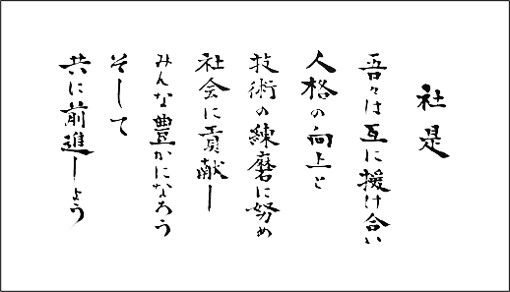 社是
吾々は互に援け合い
人格の向上と
技術の練磨に努め
社会に貢献し
みんな豊かになろう
そして
共に前進しよう